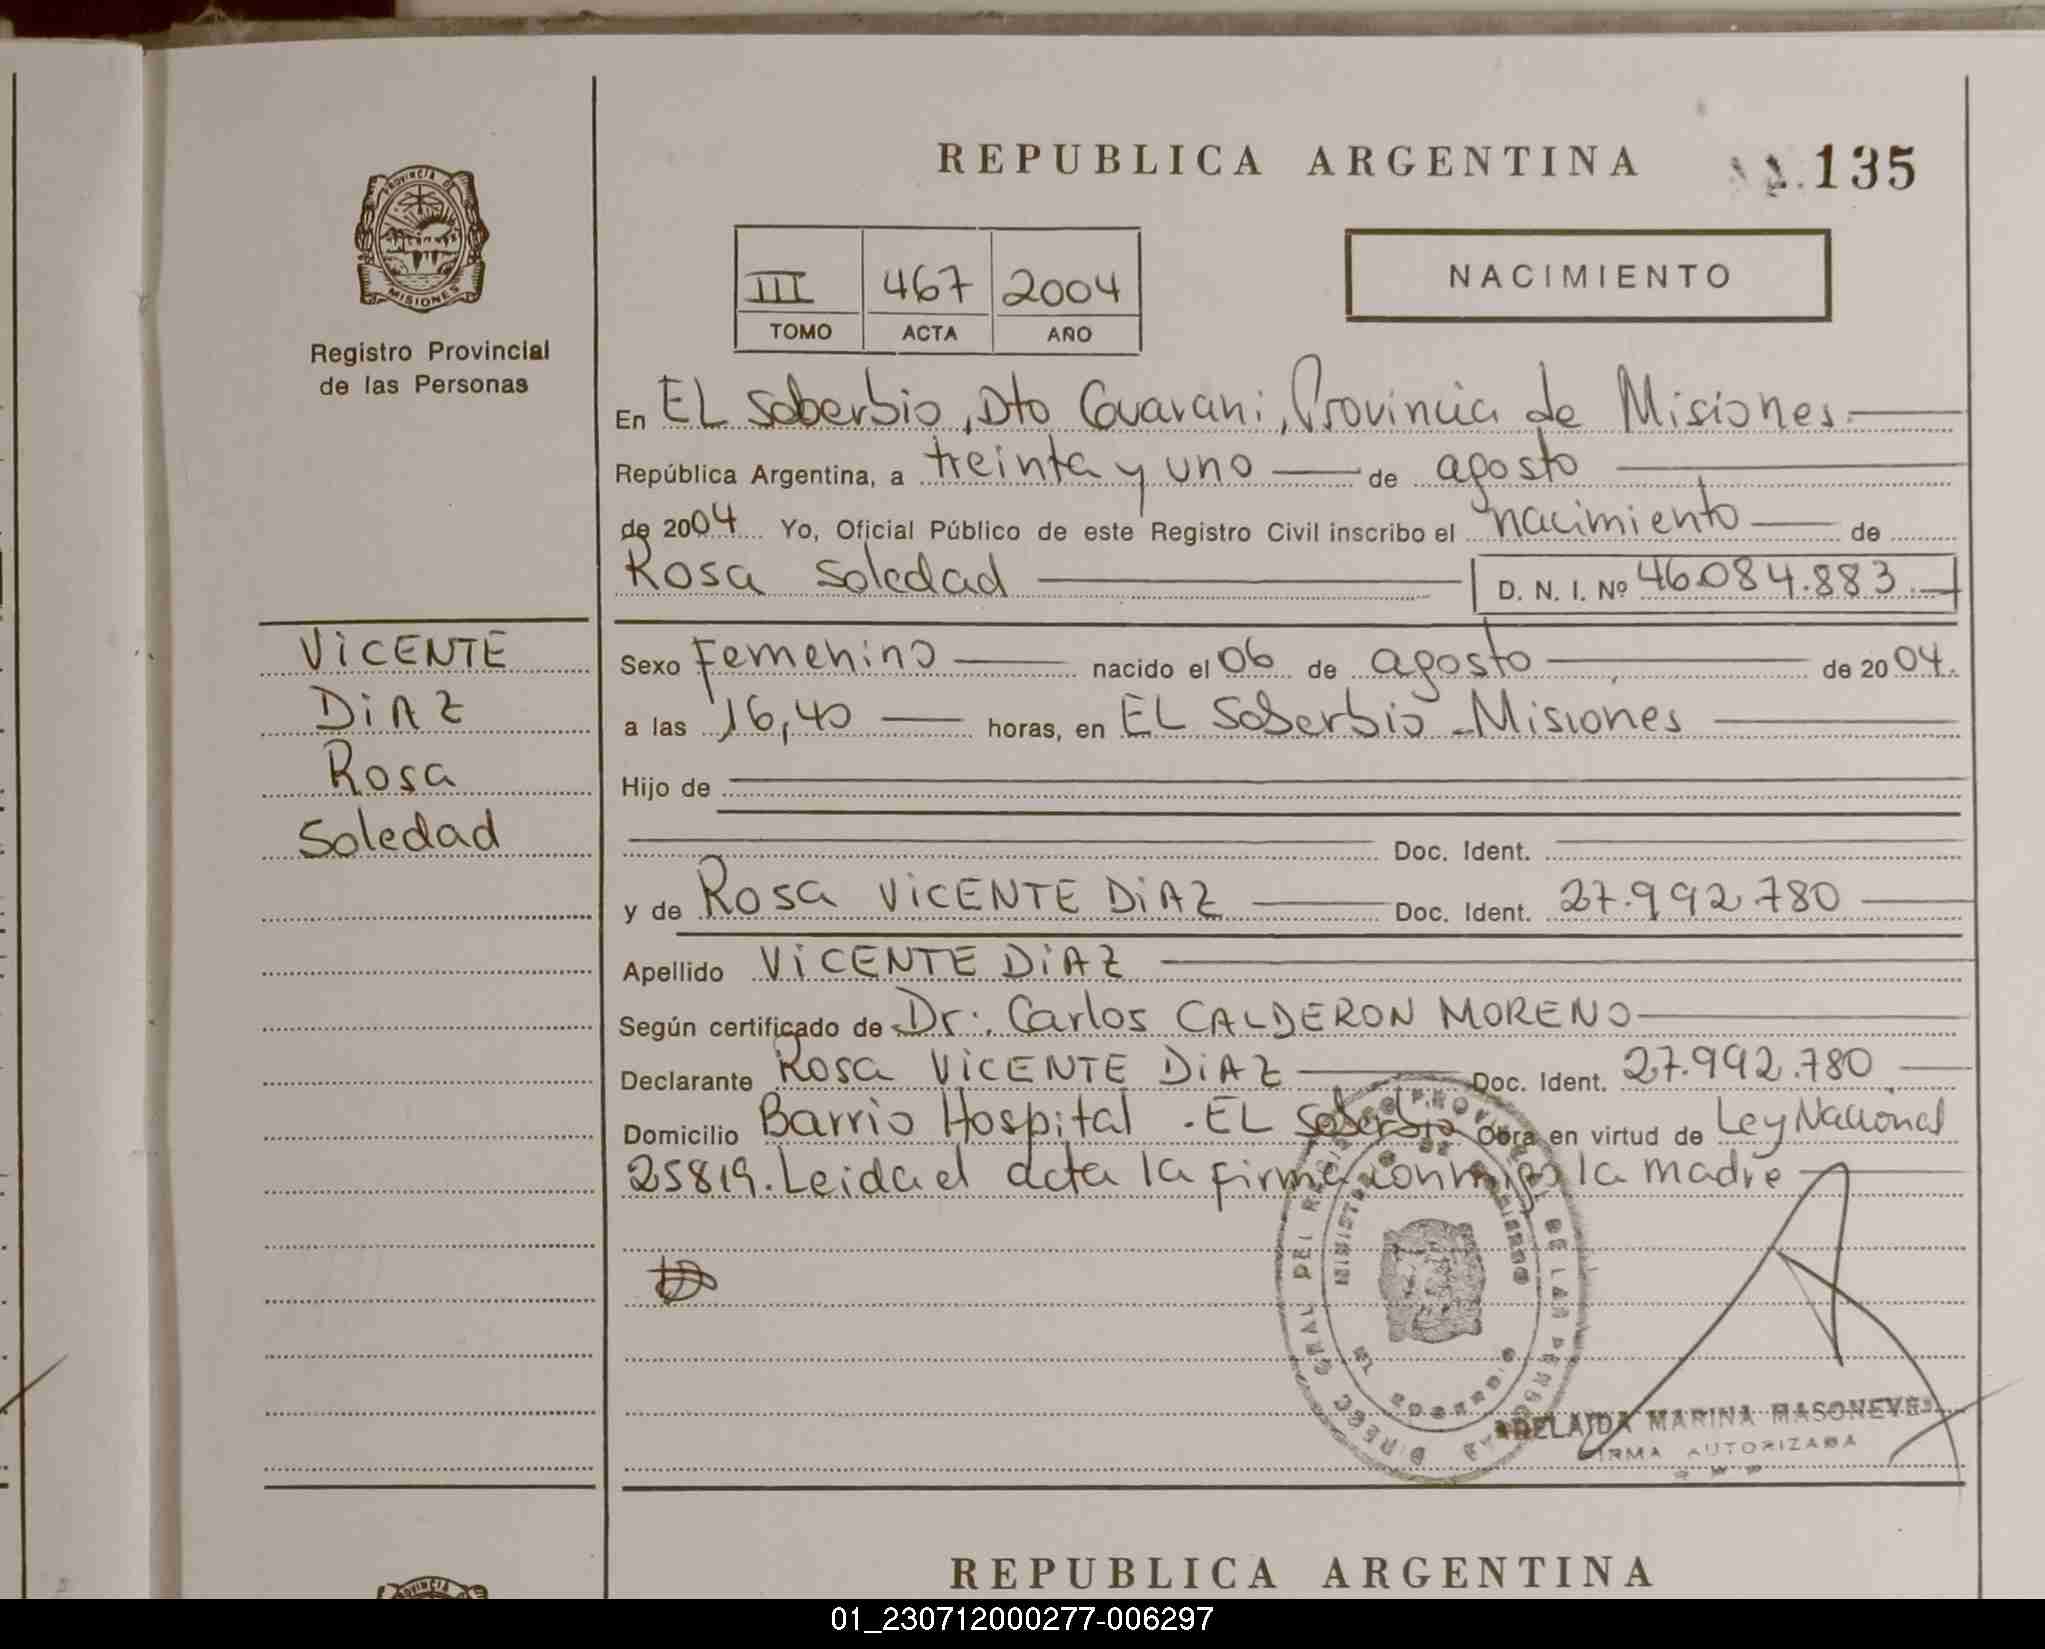 REPUBLICA ARGENTINA
135
PROVINCIA DE
MISIONES
Registro Provincial
de las Personas
III 467 2004
TOMO ACTA AÑO
NACIMIENTO
En EL Soberbio, Dto Guarani, Provincia de Misiones
República Argentina, a treinta y uno de agosto
de 2004 Yo, Oficial Público de este Registro Civil inscribo el nacimiento de
Rosa Soledad D. N. I. Nº 46.084.883
VICENTE
DIAZ
Rosa
Soledad
Sexo Femenino nacido el 06 de agosto de 2004.
a las 16,40 horas, en EL Soberbio - Misiones
Hijo de
Doc. Ident.
y de Rosa VICENTE DIAZ Doc. Ident. 27.992.780
Apellido VICENTE DIAZ
Según certificado de Dr. Carlos CALDERON MORENO
Declarante Rosa VICENTE DIAZ Doc. Ident. 27.992.780
Domicilio Barrio Hospital . EL Soberbio Obra en virtud de Ley Nacional
25819. Leida el acta la firma conmigo la madre
DIRECC GRAL DEL REGISTRO PROVINCIAL DE LAS PERSONAS
MINISTERIO DE GOBIERNO
ADELAIDA MARINA MASONEVE
FIRMA AUTORIZADA
REPUBLICA ARGENTINA
01_230712000277-006297